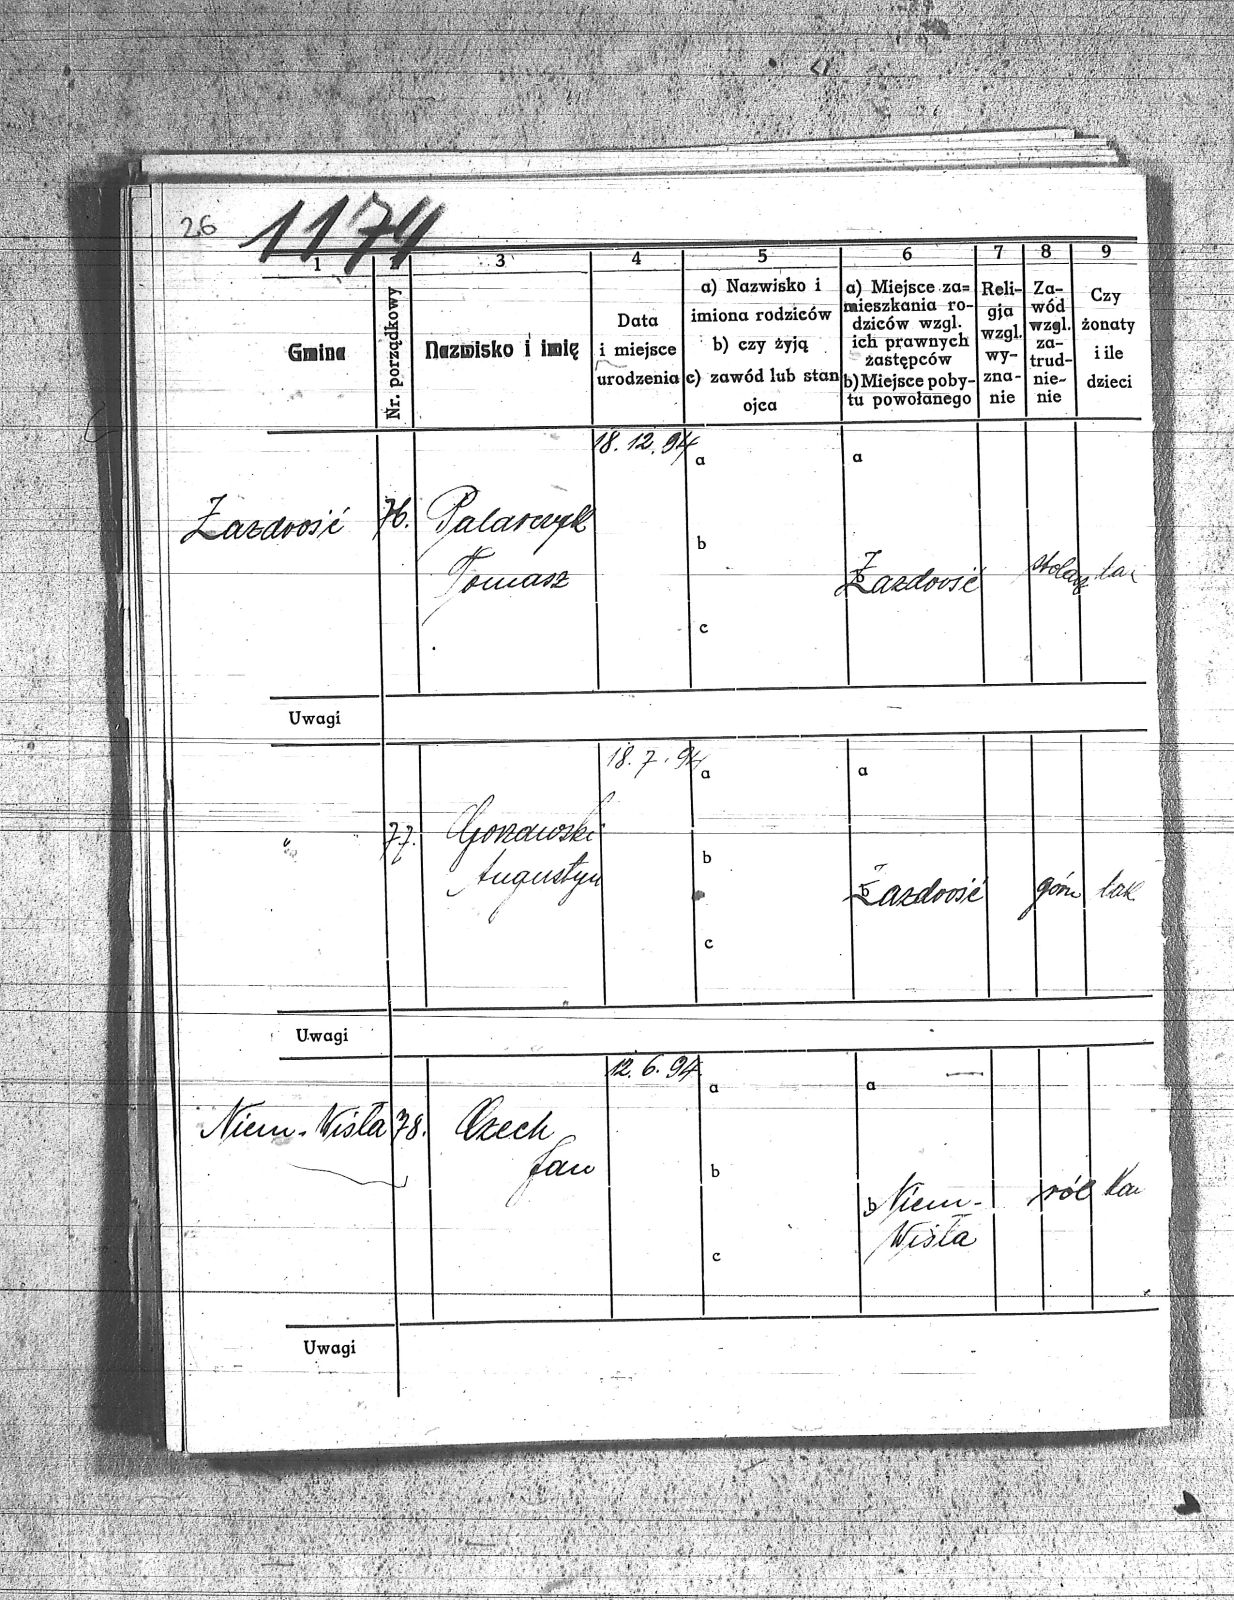 26
1174
1
2
3
4
5
6
7
8
9
Gmina
Nr. porządkowy
Nazwisko i imię
Data
i miejsce
urodzenia
a) Nazwisko i
imiona rodziców
b) czy żyją
c) zawód lub stan
ojca
a) Miejsce za=
mieszkania ro-
dziców wzgl.
ich prawnych
zastępców
b) Miejsce poby-
tu powołanego
Reli-
gja
wzgl.
wy-
zna-
nie
Za-
wód
wzgl.
za-
trud-
nie-
nie
Czy
żonaty
i ile
dzieci
18.12.94
a
a
Zazdrość 76. Palarczyk
b
Tomasz
Zazdrość
b
stolarz
c
Uwagi
18.7.94
a
a
" 77. Gorzawski
b
Augustyn
b
Zazdrość górn tak
c
Uwagi
12.6.94
a
a
Niem. Wisła 78. Czech
Jan
b
b Niem-
rol
Wisła
c
Uwagi